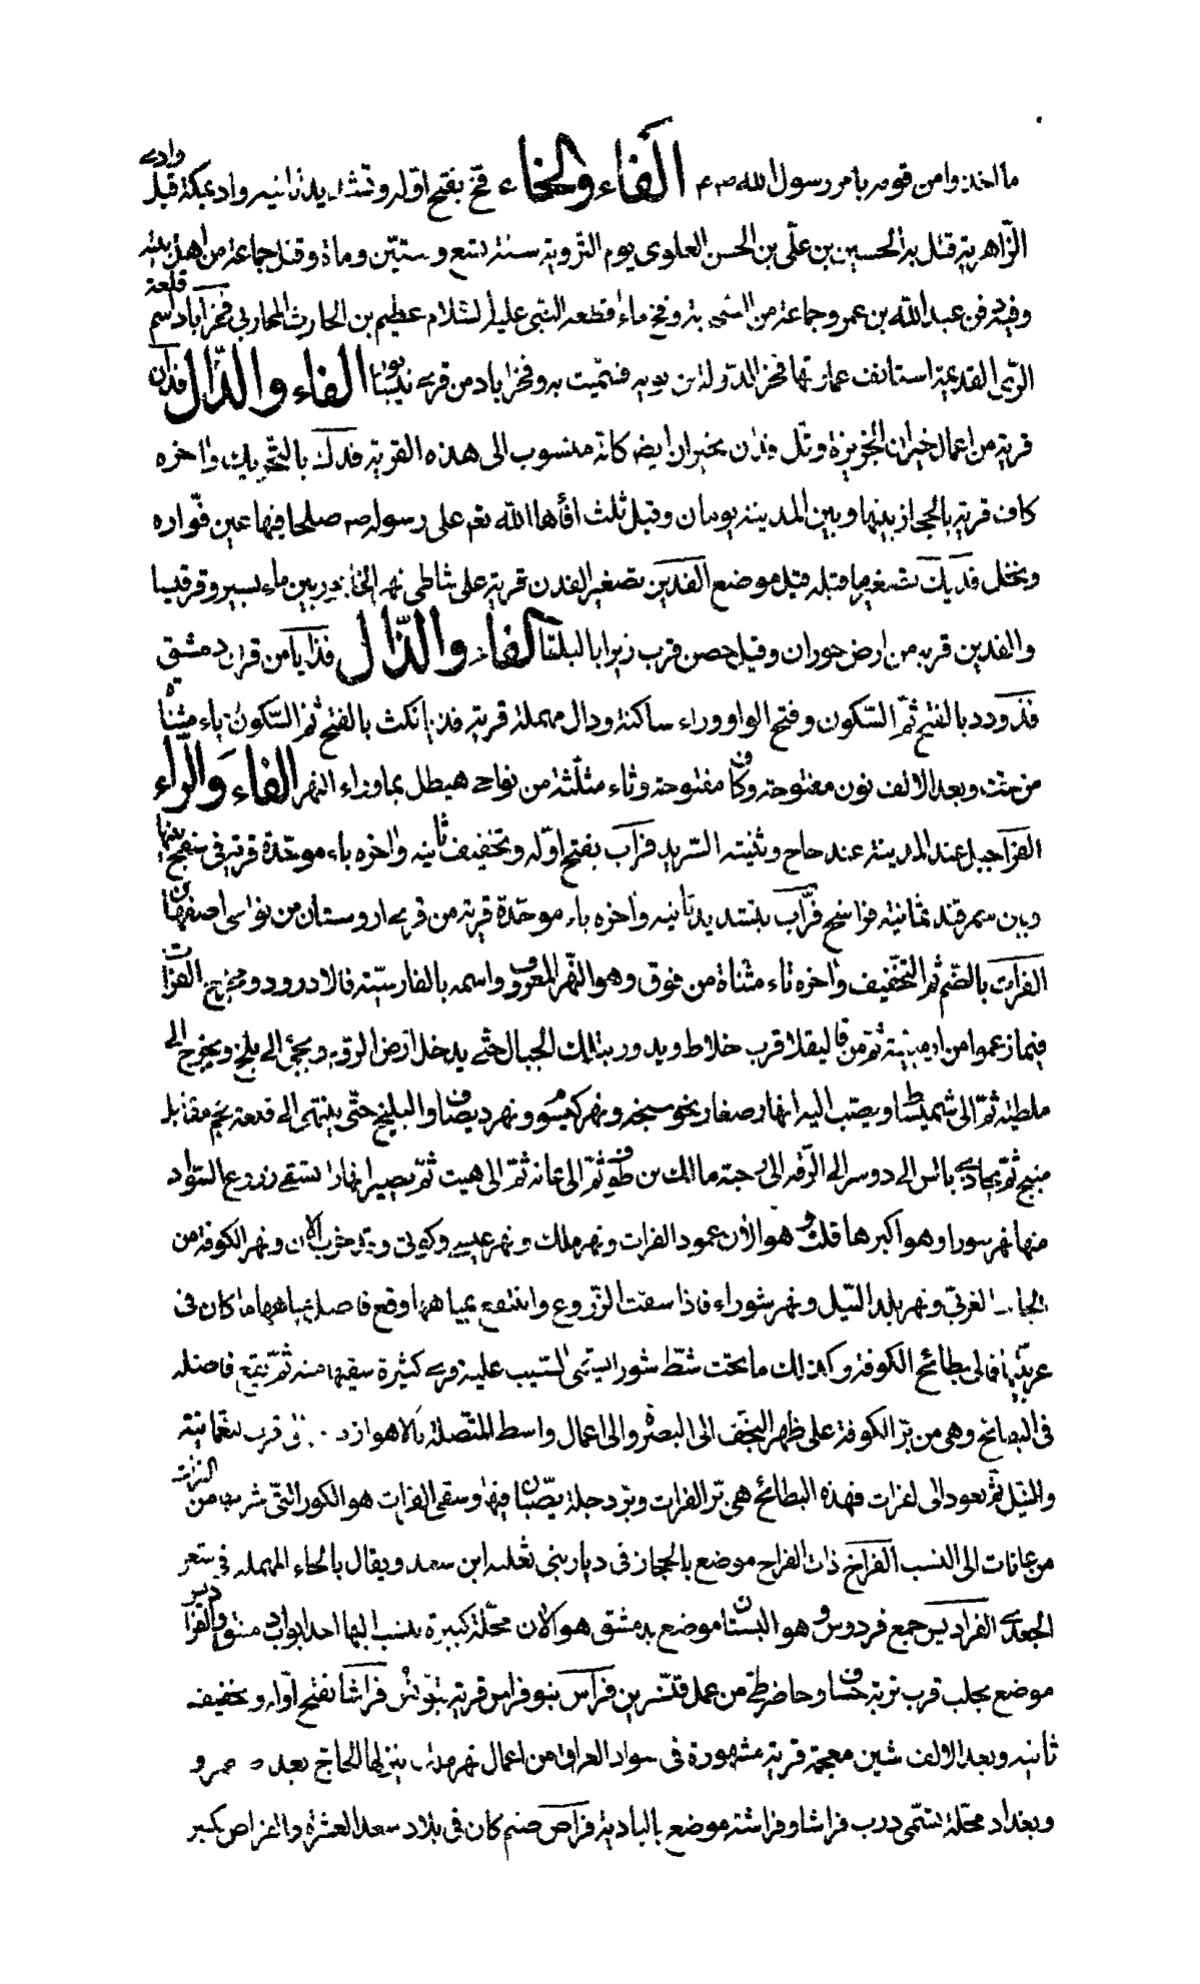 ما اخذوا من قومه بامر رسول الله صم الفاء والخاء فخ بفتح اوله وتشديد ثانيه واد بمكة قيل وادى
الزاهر به قتل به الحسين بن على بن الحسن العلوى يوم التروية سنة تسع وستين وماة وقتل جماعة من اهل بيته
وفيه دفن عبد الله بن عمر وجماعة من الصحابة وفخ ماء اقطعه النبى عليه السلام عظيم بن الحارث المحاربى فخراباد اسم قلعة
الرى القديمة استانف عمارتها فخر الدولة بن بويه فسميت به وفخراباد من قرى نيسابور الفاء والدال فدان
قرية من اعمال حران الجزيزة وتل فدان بحران ايض كانه منسوب الى هذه القرية فدك بالتحريك واخره
كاف قرية بالحجاز بينها وبين المدينة يومان وقيل ثلث افأها الله تع على رسوله صم صلحا فيها عين فواره
ونخل فديك تصغير ما قبله قيل موضع الفدين تصغير الفدن قرية على شاطى نهر الخابور بين ماكسين وقرقيسا
والفدين قريه من ارض حوران وقيل حصن قرب زيزا بالبلقا الفاء والذال فذايا من قرى دمشق
فذورد بالفتح ثم السكون وفتح الواو وراء ساكنة ودال مهملة قرية فذيانكث بالفتح ثم السكون ياء مثناة
من تحت وبعد الالف نون مفتوحة وكاف مفتوحة وثاء مثلثة من نواحى هيطل بماوراء النهر الفاء والراء
الفرا جبل عند المدينة عند خاخ وثنيته الشريد فراب بفتح اوله وتخفيف ثانيه واخره باء موحدة قرية فى سفح بينها
وبين سمرقند ثمانية فراسخ فراب بتشديد ثانيه واخره باء موحدة قرية من قرى اروستان من نواحى اصفهان
الفرات بالضم ثم التخفيف واخره تاء مثناة من فوق وهو النهر المعروف واسمه بالفارسية فالادرود ومخرج الفرات
فيما زعموا من ارمينية ثم من قاليقلا قرب خلاط ويدور بتلك الجبال حتى يدخل ارض الروم ويجئ الى بلخ ويخرج الى
ملطيه ثم الى شميساط ويصب اليه انهار صغار نحو سنجه ونهر كيسوم ونهر ديصان والبليخ حتى ينتهى الى قلعة نجم مقابل
منبج ثم يحاذى بالس الى دوسر الى الرقه الى رحبة مالك بن طوق ثم الى عانه ثم الى هيت ثم يصير انهارا تسقى زروع السواد
منها نهر سورا وهو اكبرها فلك وهو الان عمود الفرات ونهر ملك ونهر عيسى وكوثى الان ونهر الكوفة من
الجانب الغربى ونهر بلد النيل ونهر شوراء فاذا سقت الزروع وانتفع بمياهها وقع فاضل مياهها ما كان فى
غربيها فالى بطائح الكوفة وكذلك ما تحت شط شورا يسمى السيب عليه قرى كثيرة سقيها منه ثم تقع فاضله
فى البطائح وهى من بر الكوفة على ظهر النجف الى البصره والى اعمال واسط المتصلة بالاهواز قرب نعمانية
والنيل ثم يعود الى لفرات فهذه البطائح هى بر الفرات وبر دجلة يصبان فيها وسقى الفرات هو الكور التى شربها من الفرات
من عانات الى النسب الفراخ ذات الفراح موضع بالحجاز فى ديار بنى ثعلبه ابن سعد ويقال بالحاء المهمله فى شعر
الجعدى الفراديس جمع فردوس وهو البستان موضع بدمشق هو الان محلة كبيرة ينسب اليها احد ابواب دمشق
موضع بحلب قرب برية خساف وحاضر طى من عمل قنسرين فراس بنو فراس قرية بتونس فراشا بفتح اوله وتخفيف
ثانيه وبعد الالف شين معجمة قرية مشهورة فى سواد العراق من اعمال نهر ملك ينزلها الحاج بعد صرصر و
وبغداد محلة تسمى درب فراشا وفراشة موضع بالبادية فراص صنم كان فى بلاد سعد العشرة والفراص بكسر